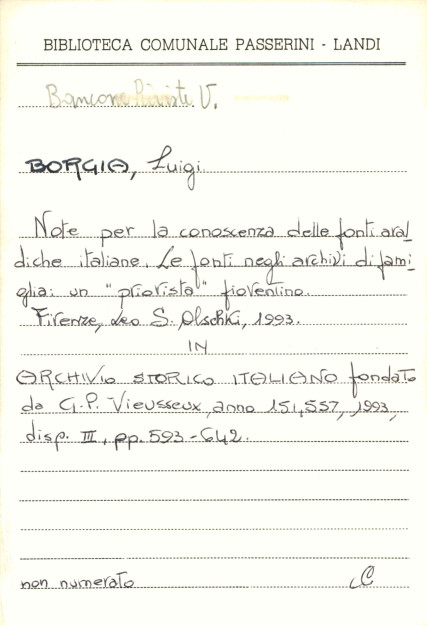 BIBLIOTECA COMUNALE PASSERINI - LANDI
Bancone Riviste V.
BORGIA, Luigi
Note per la conoscenza delle fonti aral
diche italiane. Le fonti negli archivi di fami
glia: un "priorista" fiorentino.
Firenze, Leo S. Olschki, 1993.
IN
ARCHIVIO STORICO ITALIANO fondato
da G.P. Vieusseux, anno 151, 557, 1993,
disp. III, pp. 593-642.
non numerato C